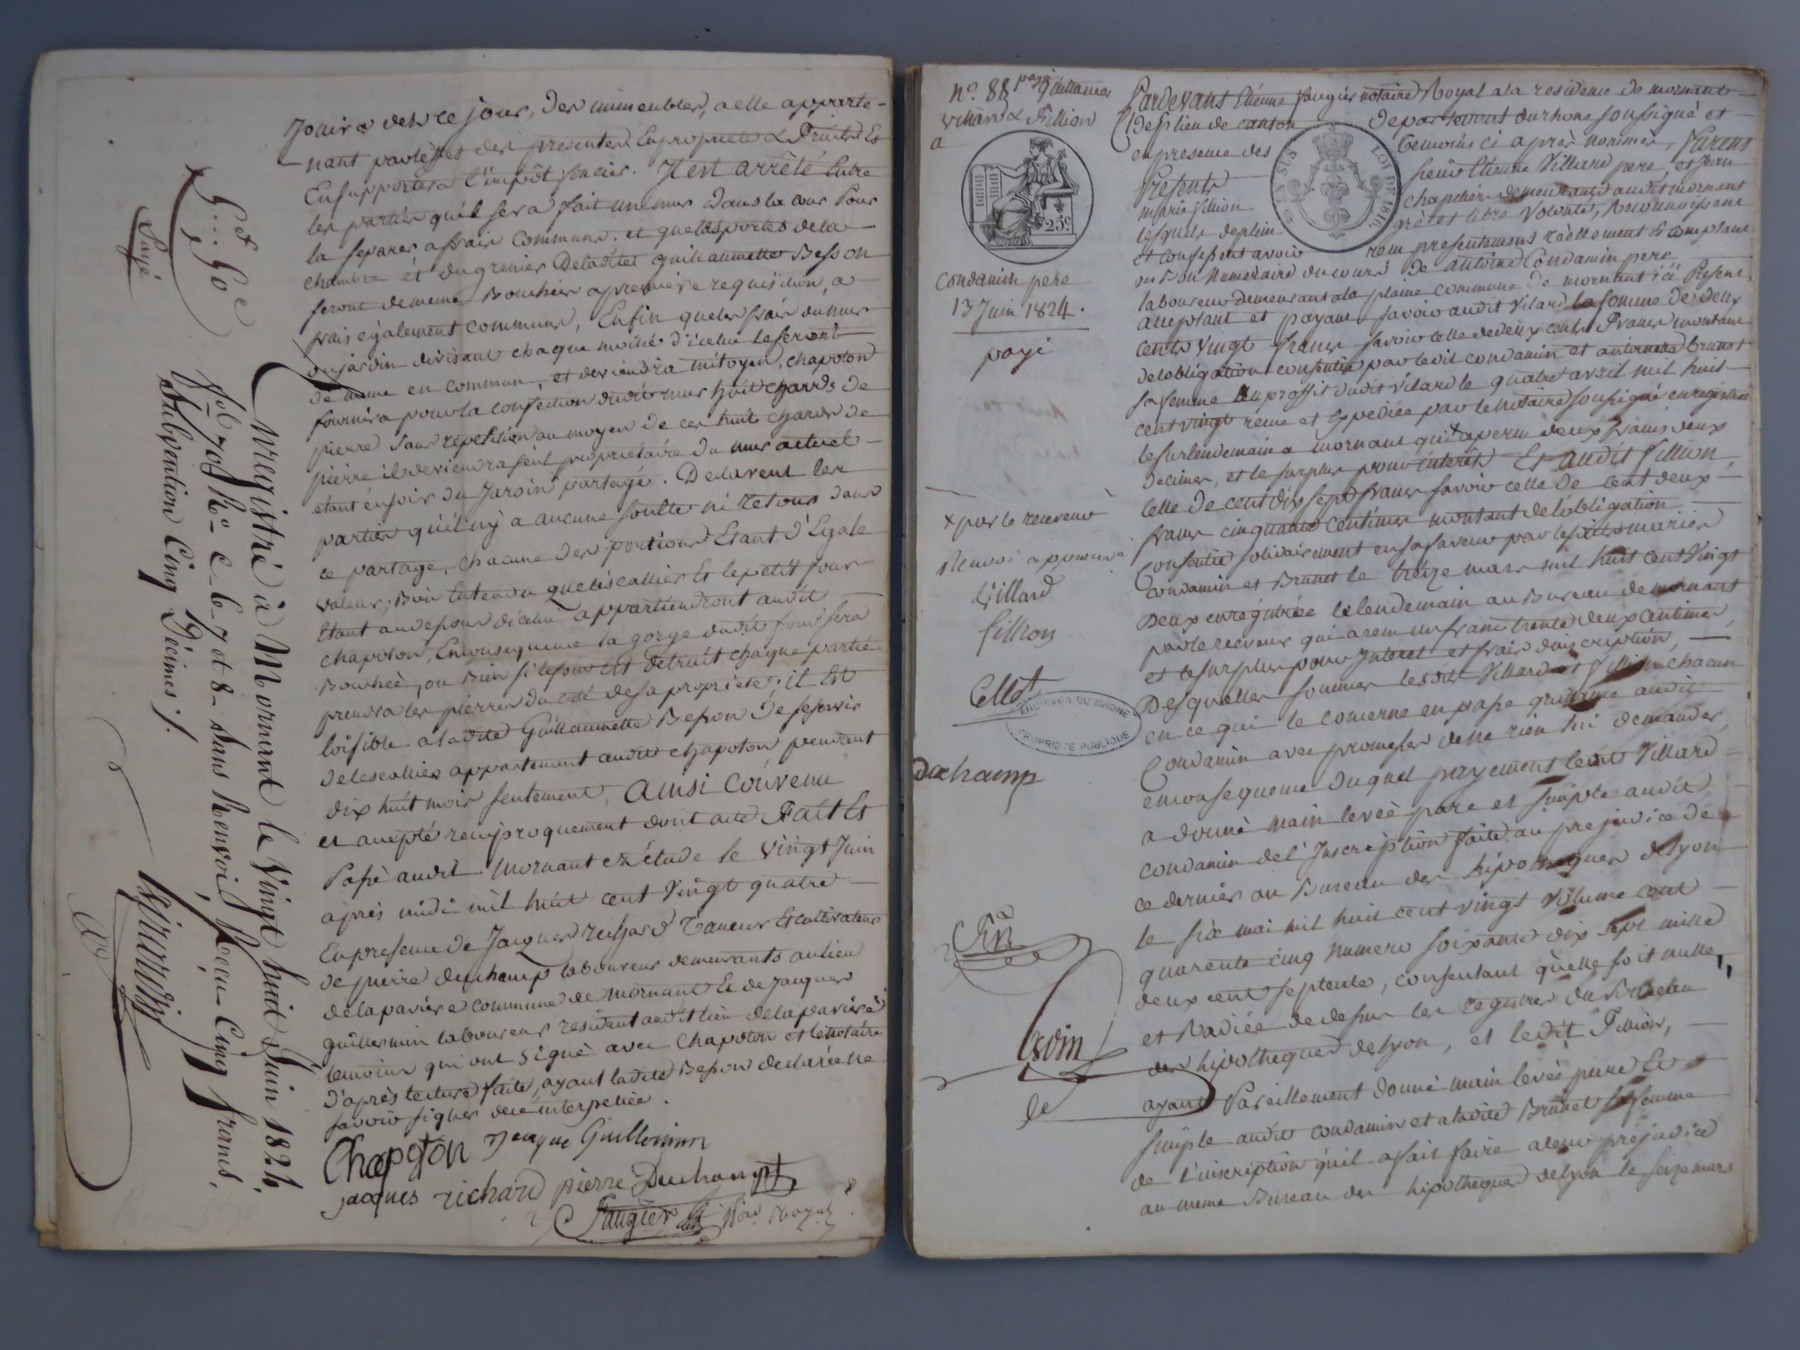 Jouira dès ce jour, des immeubles, a elle apparte-
nant par l'effet des presentes En propriété & Fruits Et
En supportera l'impôt foncier. Il est arrêté Entre
les parties qu'il sera fait un mur dans la cour Pour
la separer a frais communs. et que les portes de la
chambre et du grenier De ladite guillaumette Besson
seront de meme Bouchées a premiere requisition, a
frais egalement communs, Enfin que les frais du mur
du jardin divisant chaque moitié d'icelui se feront
de meme en commun, et deviendra mitoyen, chapoton
fournira pour la confection dudit mur huit charrs de
pierre sans repetition au moyen de ces huit chars de
pierre il deviendra seul proprietaire du mur actuel
etant en soir du Jardin partagé. Declarent les
parties qu'il n'y a aucune soulte ni retour dans
ce partage, chacune des portions Etant d'Egale
valeur, Bien Entendu que l'escallier Et le petit four
Etant au dessous d'icelui appartiendront audit
chapoton, En consequence la gorge dudit four sera
Bouchée, ou Bien si le four Est detruit chaque partie
prendra les pierres du coté de sa propriete; il Est
loisible a ladite Guillaumette Besson de se servir
de l'escallier appartenant audit chapoton pendant
dix huit mois seulement, Ainsi Convenu
et accepté reciproquement dont acte Fait Et
Passé audit Mornant en étude le vingt Juin
après midi mil huit cent vingt quatre
En presence de Jacques richard Taneur Et cultivateur
de pierre duchamp laboureur demeurants au lieu
de la pavière commune de Mornant Et de Jacques
guillermin laboureur residant audit lieu de la pavière
temoins qui ont signé avec chapoton et le notaire
d'après lecture faite, ayant ladite Besson declaré ne
savoir signer de ce interpellée.
Chapoton Jacque Guillermin
jacques richard pierre Duchampt
Faugier Nore Royal
Payé
Enregistré à Mornant le vingt huit Juin 1824,
fol. 70 Ro C. 6. 7 et 8 sans Renvoi, Reçu Cinq francs,
Subvention Cinq Décimes ./.
no. 88 payé quittances
villard & Fillion
a
25 c.
EN SUS
LOI DE 1816
condamin pere
13 Juin 1824.
payé
Pardevant Etienne faugier notaire Royal a la residence de mornant
chef lieu de canton departement du rhone soussigné et
en presence des temoins ci après nommés, Furent
Presents sieurs Etienne Villard pere, et Jean
marie fillion chapelier demeurants audit mornant
lesquels de plein gré et libre volonté, Reconnoissent
et confessent avoir recu presentement réellement Et comptant
en Bon Numeraire du cours de antoine Condamin pere
laboureur demeurant a la plaine commune de mornant ici Present
acceptant et payant savoir audit Vilard la somme de deux
cents vingt francs savoir celle de deux cents Francs montant
de l'obligation consentie par ledit condamin et antoinette brunet
sa femme Au proffit dudit Vilard le quatre avril mil huit
cent vingt reçue et Expediée par le notaire soussigné enregistrée
le surlendemain a mornant qui x a percu deux francs deux
decimes, et le surplus pour interet, Et audit fillion,
Celle de cent dix sept francs savoir celle de cent deux
francs cinquante centimes montant de l'obligation
Consentie solidairement en sa faveur par lesdits mariés
Condamin et Brunet le treize mars mil huit cent vingt
Deux enregistrée le lendemain au Bureau de mornant
par le receveur qui a reçu un franc trente deux centimes,
et le surplus pour Interet et frais d'inscription,
Desquelles sommes lesdits Villard et fillion chacun
en ce qui le concerne en passe quittance audit
Condamin avec promesse de ne rien lui demander,
en consequence duquel payement ledit Villard
a donné main levée pure et simple audit
condamin de l'Inscription faite au prejudice de
ce dernier au Bureau des hipotheques de Lyon
le six mai mil huit cent vingt volume cent
quarente cinq numero soixante dix sept mille
deux cent septente, consentant qu'elle soit nulle
et Radiée de dessus les registres du Bureau
des hipotheques de Lyon, et ledit Fillion,
ayant Pareillement donné main levée pure Et
simple audit condamin et a ladite Brunet sa femme
de l'inscription qu'il a fait faire a leur prejudice
au meme Bureau des hipotheques de Lyon le seize mars
x par le receveur
Renvoi approuvé
Villard
fillion
duchamp
ARCHIVES DU RHONE
PROPRIETE PUBLIQUE